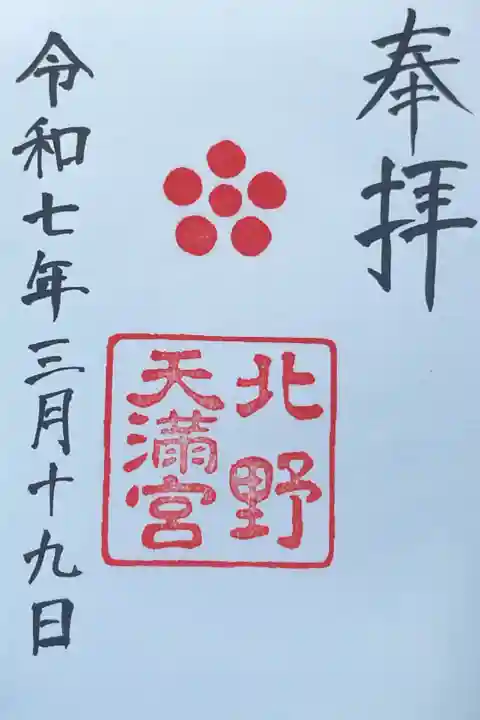 奉拝
北野
天満宮
令和七年三月十九日